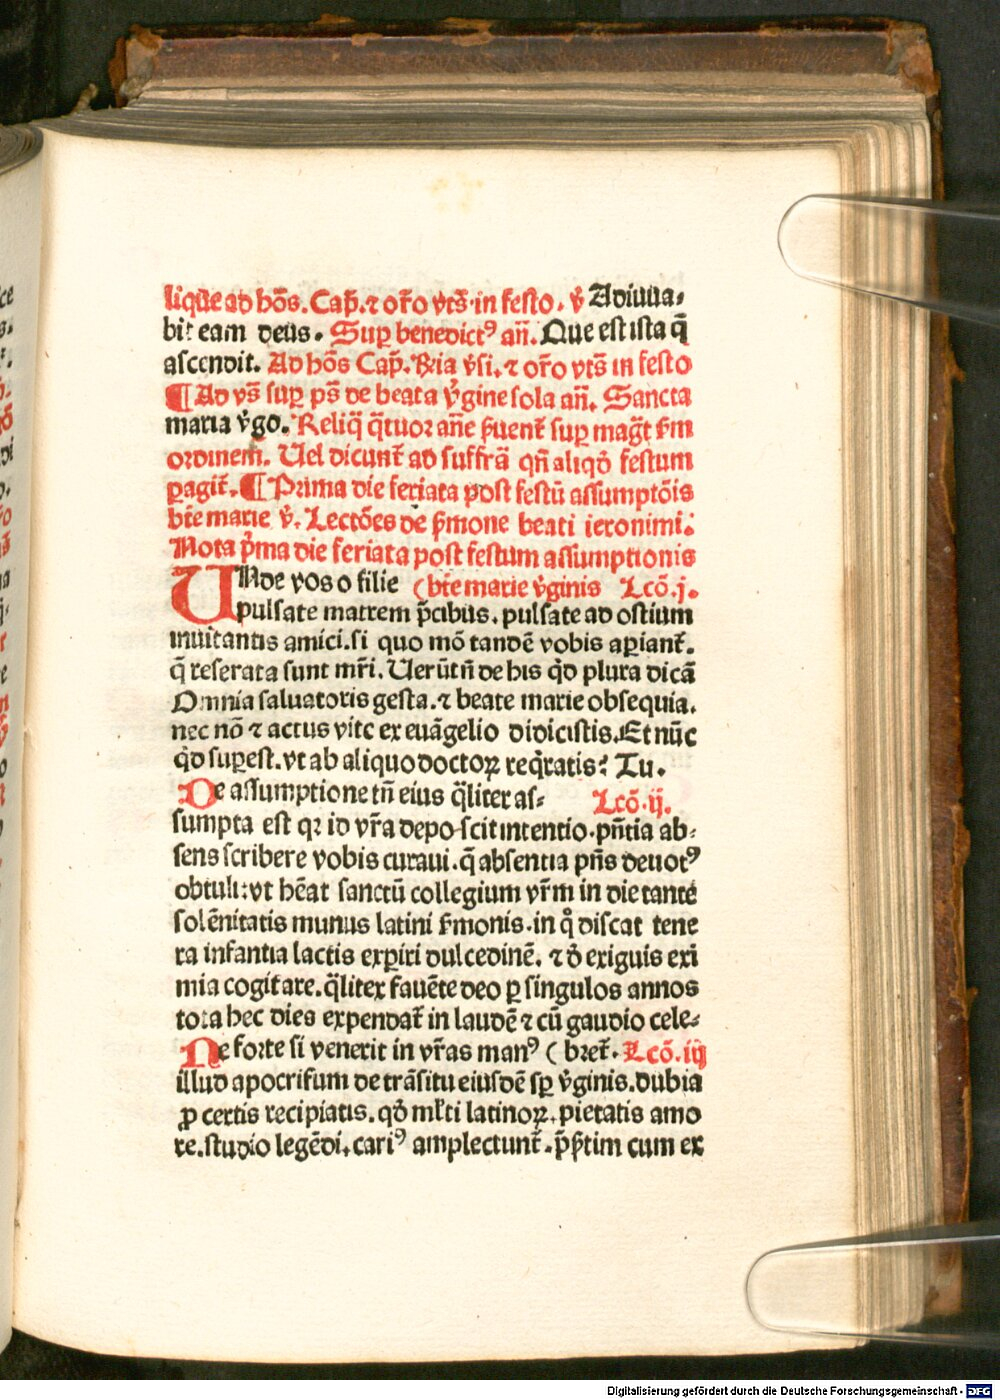 liqȝe ad hōs. Cap̄. ⁊ or̄o vts̄ in festo. v̄ Adiuua⸗
bit eam deus. Sup̱ benedictꝰ an̄. Que est ista q̄
ascendit. Ad hōs Cap̄. R̄ia v̄si. ⁊ or̄o vts̄ in festo
¶ Ad vs̄ sup̱ ps̄ de beata v̄gine sola an̄. Sancta
maria v̄go. Reliq̄ q̄tuor an̄e p̄uent̄ sup̱ maḡt s̄m
ordinem. Uel dicunt̄ ad suffrā qn̄ aliqḋ festum
ꝑagit̄. ¶ Prima die feriata post festū assumptōis
bt̄e marie v̄. Lectōes de s̄mone beati ieronimi.
Nota p̄ma die feriata post festum assumptionis
UNde vos o filie (bt̄e marie v̄ginis Lcō.j.
pulsate matrem p̄cibus. pulsate ad ostium
inuitantis amici. si quo mō tandē vobis aꝑiant̄.
q̄ reserata sunt mr̄i. Uerūtn̄ de his qḋ plura dicā
Omnia saluatoris gesta. ⁊ beate marie obsequia.
nec nō ⁊ actus vite ex euāgelio didicistis. Et nūc
qḋ suꝑest. vt ab aliquo doctoꝝ req̄ratis? Tu.
De assumptione tn̄ eius q̄liter as⸗ Lcō.ij.
sumpta est qꝛ id vr̄a deposcit intentio. pn̄tia ab⸗
sens scribere vobis curaui. q̄ absentia pn̄s deuotꝰ
obtuli: vt hēat sanctū collegium vr̄m in die tante
solēnitatis munus latini s̄monis. in q̊ discat tene
ra infantia lactis exꝑiri dulcedinē. ⁊ ḋ exiguis exi
mia cogitare. q̄liter fauēte deo ꝑ singulos annos
tota hec dies expendat̄ in laudē ⁊ cū gaudio cele⸗
Ne forte si venerit in vr̄as manꝰ (bret̄. Lcō.iij
illud apocrifum de trāsitu eiusdē sꝑ v̄ginis. dubia
ꝓ certis recipiatis. qḋ ml̄ti latinoꝝ. pietatis amo
re. studio legēdi. cariꝰ amplectunt̄. p̄s̄tim cum ex
Digitalisierung gefördert durch die Deutsche Forschungsgemeinschaft - DFG